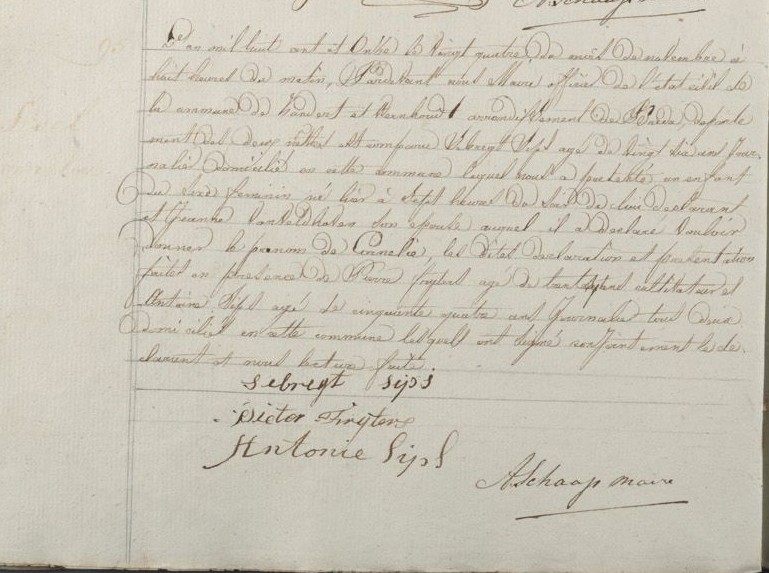 A Schaap maire
L'an mil huit cent et Onse le Vingt quatre du mois de novembre à
huit heures de matin, Pardevant nous Maire officier de l'etat civil de
la commune de Zundert et Wernhout arrondissement de Breda, departe
ment des deux nethes est comparu Sebregt Sips agé de Vingt six ans Jour
nalie domicilié en cette commune lequel nous a presenté un enfant
du sexe feminin né hier à Sept heures du Soir de lui declarant
et Jeanne son epouse auquel il a declaré vouloir
donner le prenom de Cornelia, les dites declaration et presentation
faites en presence de Pierre agé de ans cultivateur et
Antoine Sips agé de cinquante quatre ans Journalie tous deux
domicilies en cette commune lesquels ont signé conjointement le de
clarant et nous lecture faite.
sebregt sips
Pieter
Antonie Sips
A Schaap maire